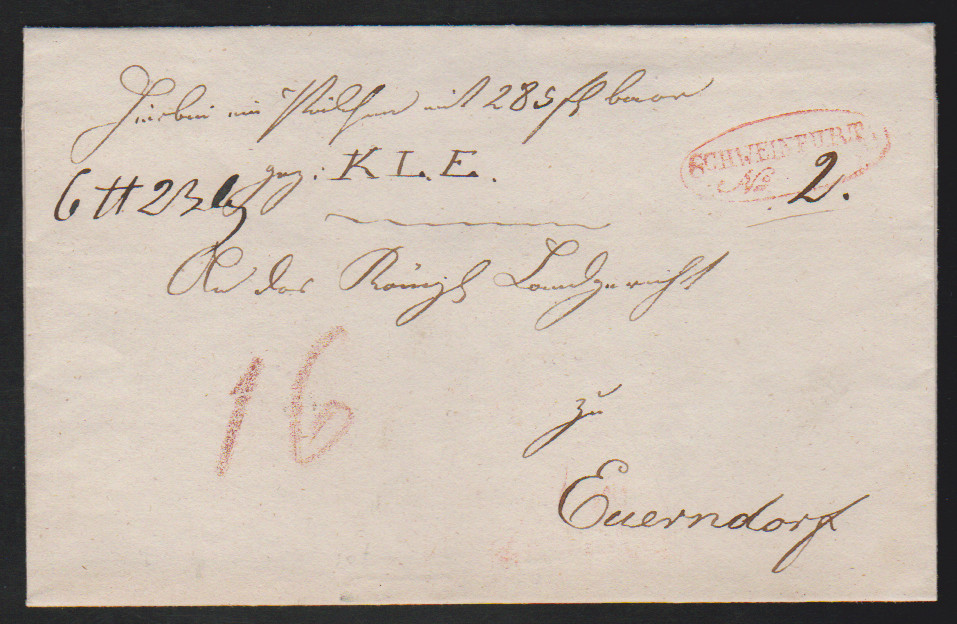 Hiebei ein Päckchen mit 285 fl baar
SCHWEINFURT.
No 2.
gez: K L. E.
6 ℔ 23 L
An das Königl Landgericht
16
zu
Euerndorf